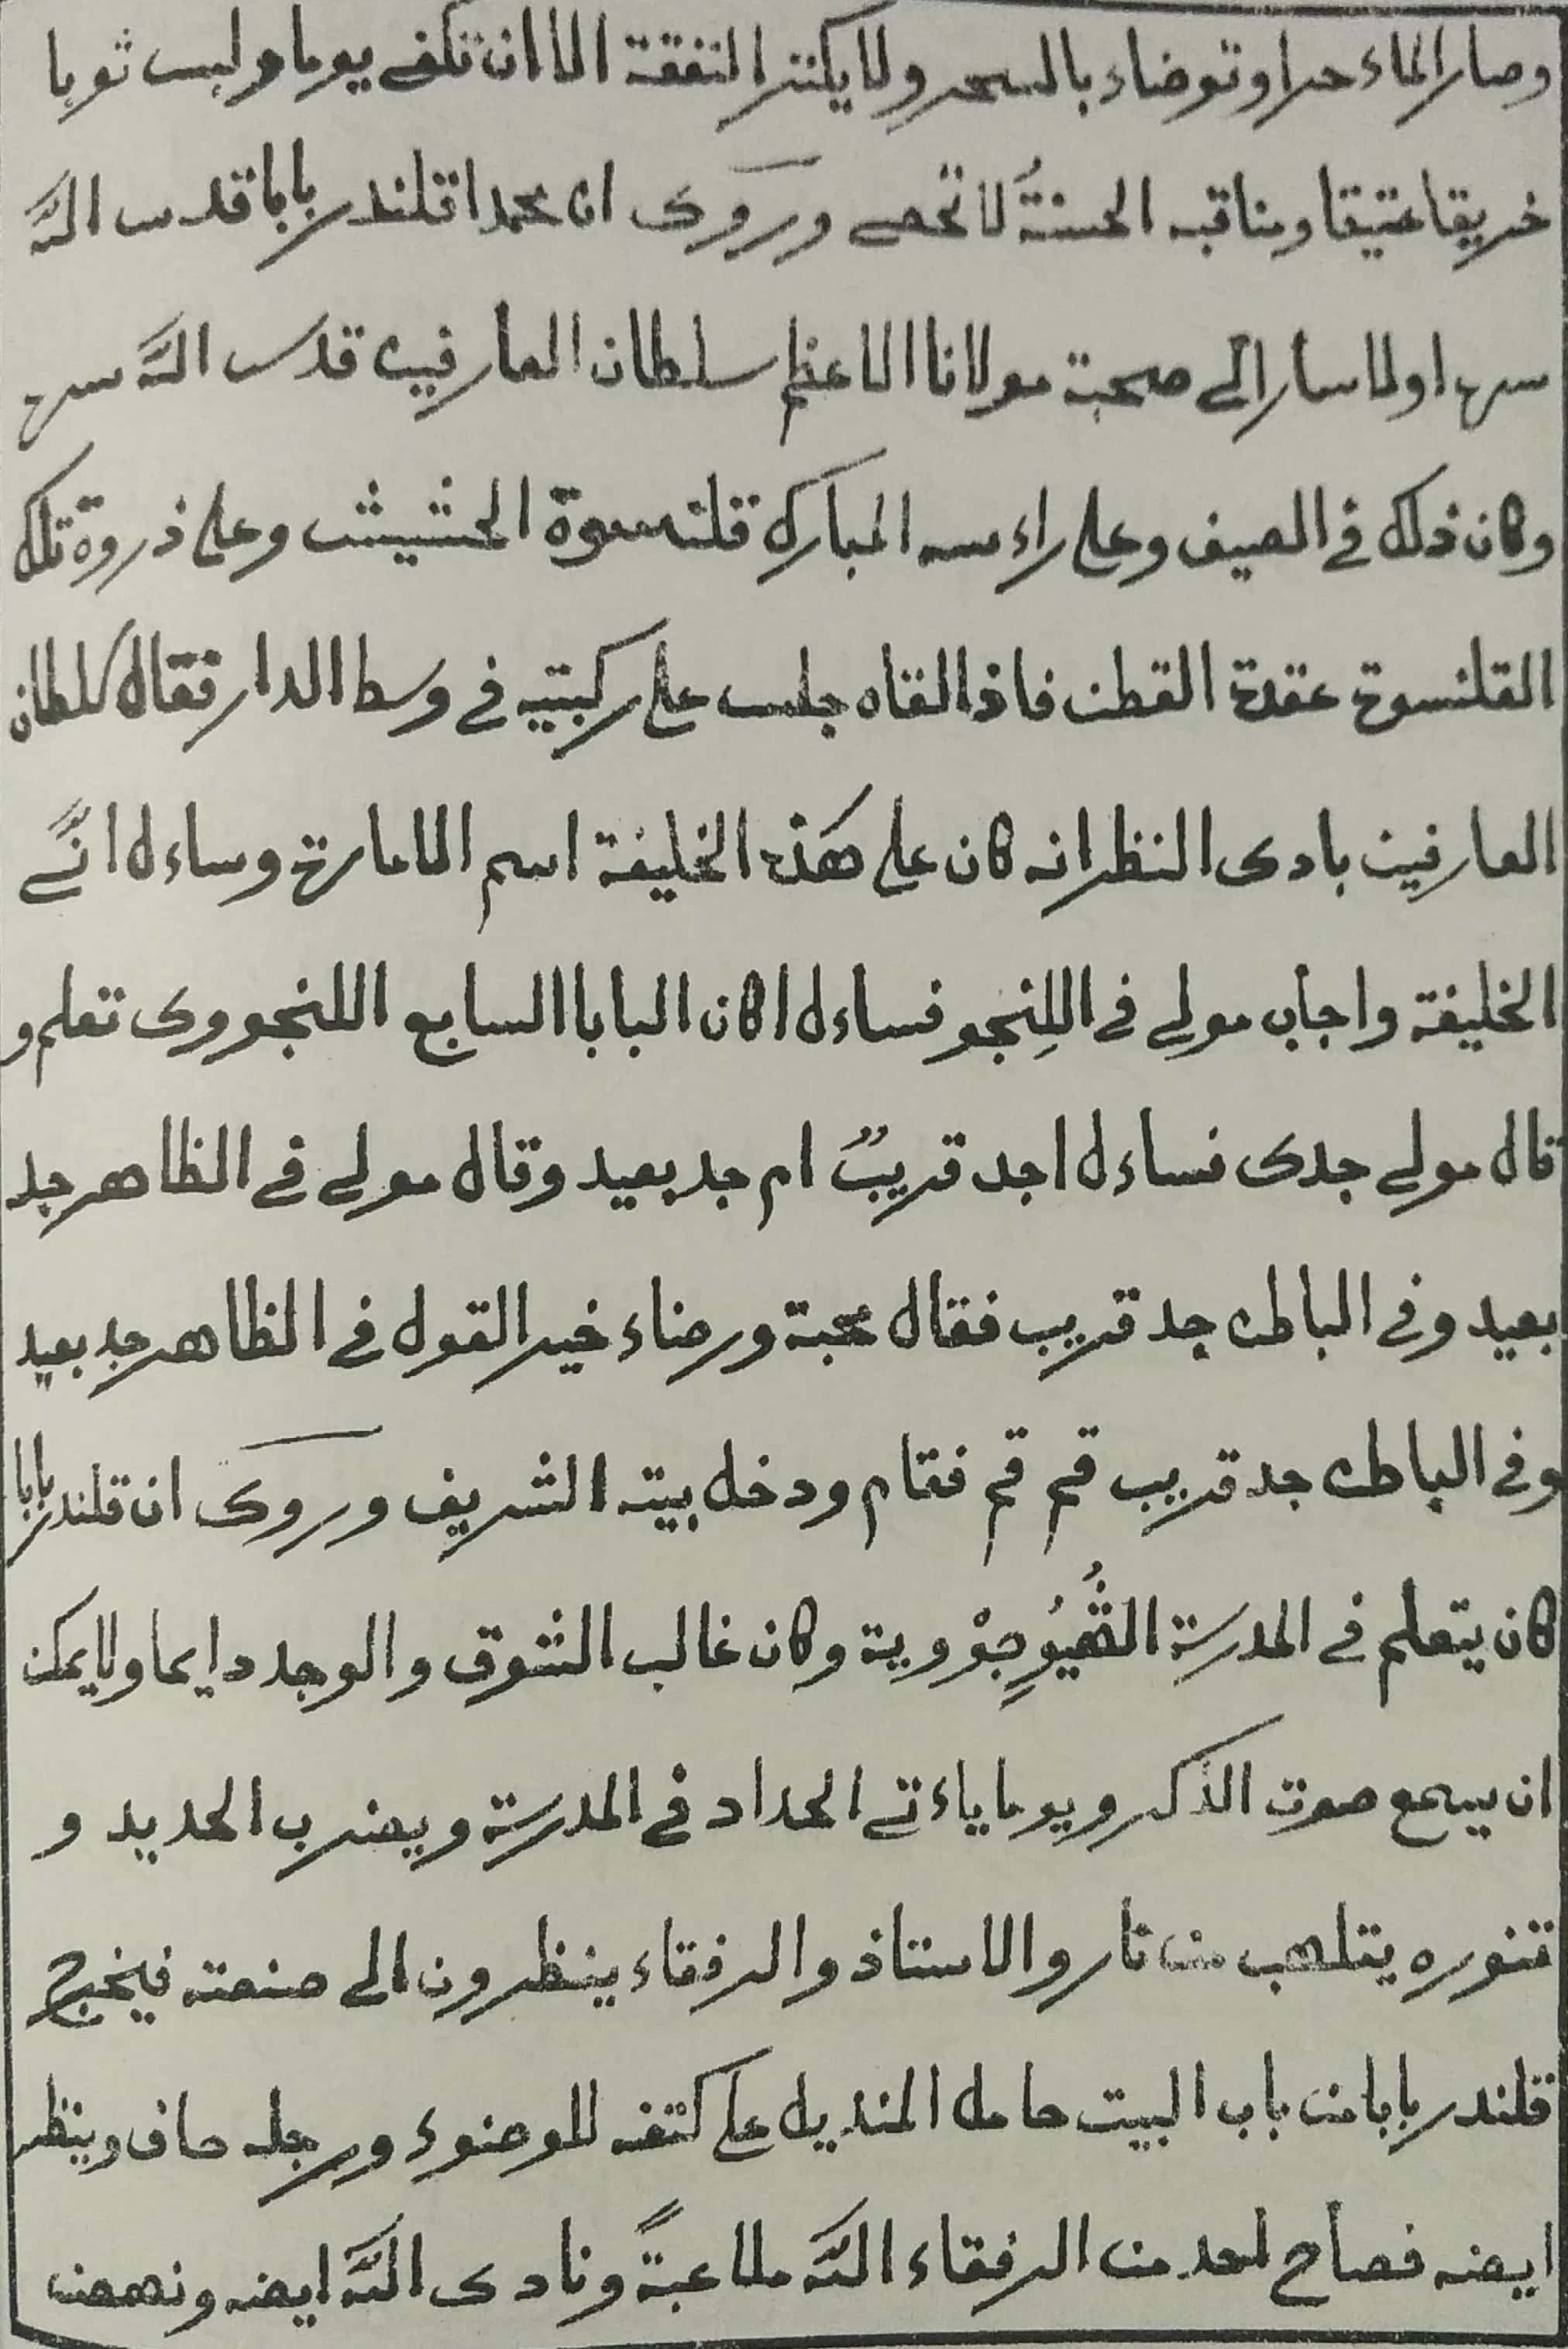 وصار الماء حرا وتوضاء بالسحر ولا يكنز النفقة الا ان تكفى يوما ولبس ثوبا
خريقا عتيقا ومناقبه الحسنةُ لا تحصى وروى ان محمدا قلندر بابا قدس الله
سره اولا سار الى صحبة مولانا الاعظم سلطان العارفين قدس الله سره
وكان ذلك فى الصيف وعلى راءسه المبارك قلنسوة الحشيش وعلى ذروة تلك
القلنسوة عقدة القطن فاذا لقاه جلس على ركبتيه فى وسط الدار فقال سلطان
العارفين بادى النظر انه كان على هذه الخليفة اسم الامارة وساءل انَّى
الخليفة واجاب مولى فى اللِنجو فساءل اكان البابا السابع اللنجووى تعلم و
قال مولى جدى فساءل اجد قريبٌ ام جد بعيد وقال مولى فى الظاهر جد
بعيد وفى الباطن جد قريب فقال محبة ورضاء خير القول فى الظاهر جد بعيد
وفى الباطن جد قريب قم قم فقام ودخل بيته الشريف وروى ان قلندر بابا
كان يتعلم فى المدرسة وكان غالب الشوق والوجد دايما ولا يمكن
ان يسمع صوت الذكر ويوما ياءتى الحداد فى المدرسة ويضرب الحديد و
تنوره يتلهب من نار والاستاذ والرفقاء ينظرون الى صنعته فيخرج
قلندر بابا من باب البيت حامل المنديل على كتفه للوضوء ورجله حاف وينظر
ايضه فصاح احد من الرفقاء الله ملاعبةً ونادى الله ايضه ونهض